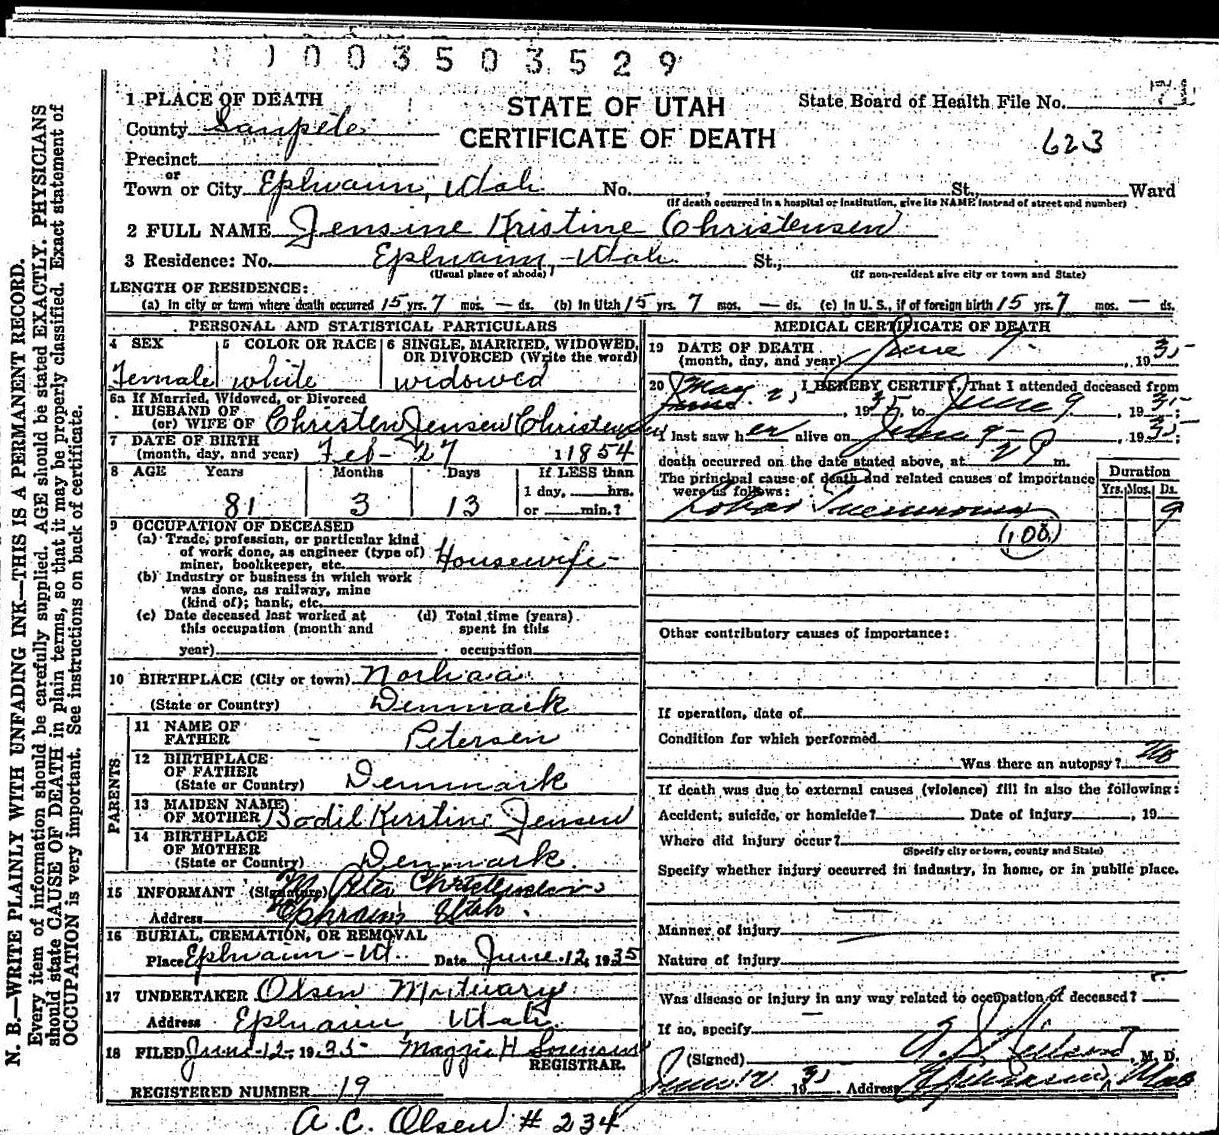 1003503529
1 PLACE OF DEATH
STATE OF UTAH
State Board of Health File No.
County Sanpete
CERTIFICATE OF DEATH
623
Precinct
or
Town or City Ephraim, Utah No. , St., Ward
(If death occurred in a hospital or institution, give its NAME instead of street and number)
2 FULL NAME Jensine Kristine Christensen
3 Residence: No. Ephraim - Utah St.,
(Usual place of abode) (If non-resident give city or town and State)
LENGTH OF RESIDENCE:
(a) In city or town where death occurred 15 yrs. 7 mos. — ds. (b) In Utah 15 yrs. 7 mos. — ds. (c) In U. S., if of foreign birth 15 yrs. 7 mos. — ds.
PERSONAL AND STATISTICAL PARTICULARS
4 SEX 5 COLOR OR RACE 6 SINGLE, MARRIED, WIDOWED, OR DIVORCED (Write the word)
Female white widowed
6a If Married, Widowed, or Divorced
HUSBAND OF
(or) WIFE OF Christen Jensen Christensen
7 DATE OF BIRTH
(month, day, and year) Feb - 27 1854
8 AGE Years Months Days If LESS than
1 day, hrs.
81 3 13 or min.?
9 OCCUPATION OF DECEASED
(a) Trade, profession, or particular kind
of work done, as engineer (type of)
miner, bookkeeper, etc. Housewife -
(b) Industry or business in which work
was done, as railway, mine
(kind of); bank, etc.
(c) Date deceased last worked at (d) Total time (years)
this occupation (month and spent in this
year) occupation
10 BIRTHPLACE (City or town)
(State or Country) Denmark
PARENTS
11 NAME OF
FATHER - Petersen
12 BIRTHPLACE
OF FATHER
(State or Country) Denmark
13 MAIDEN NAME
OF MOTHER Bodil Kerstine Jensen
14 BIRTHPLACE
OF MOTHER
(State or Country) Denmark.
15 INFORMANT (Signature) Peter Christensen
Address Ephraim Utah.
16 BURIAL, CREMATION, OR REMOVAL
Place Ephraim - Ut. Date June 12, 1935
17 UNDERTAKER Olsen Mortuary
Address Ephraim, Utah.
18 FILED June - 12 - 1935 - Maggie H Sorensen
REGISTRAR.
REGISTERED NUMBER 19
A. C. Olsen # 234
MEDICAL CERTIFICATE OF DEATH
19 DATE OF DEATH
(month, day, and year) June 9 , 1935
20 May 2, I HEREBY CERTIFY, That I attended deceased from
, 1935, to June 9 , 1935;
I last saw her alive on June 9 - , 1935;
death occurred on the date stated above, at m.
The principal cause of death and related causes of importance
were as follows:
Duration
Yrs. Mos. Ds.
Lobar Pneumonia 9
(108)
Other contributory causes of importance:
If operation, date of
Condition for which performed
Was there an autopsy? No
If death was due to external causes (violence) fill in also the following:
Accident, suicide, or homicide? Date of injury , 19
Where did injury occur?
(Specify city or town, county and State)
Specify whether injury occurred in industry, in home, or in public place.
Manner of injury
Nature of injury
Was disease or injury in any way related to occupation of deceased?
If so, specify
(Signed) , M. D.
June 12 1935 Address Ephraim, Utah
N. B.—WRITE PLAINLY WITH UNFADING INK—THIS IS A PERMANENT RECORD.
Every item of information should be carefully supplied. AGE should be stated EXACTLY. PHYSICIANS
should state CAUSE OF DEATH in plain terms, so that it may be properly classified. Exact statement of
OCCUPATION is very important. See instructions on back of certificate.